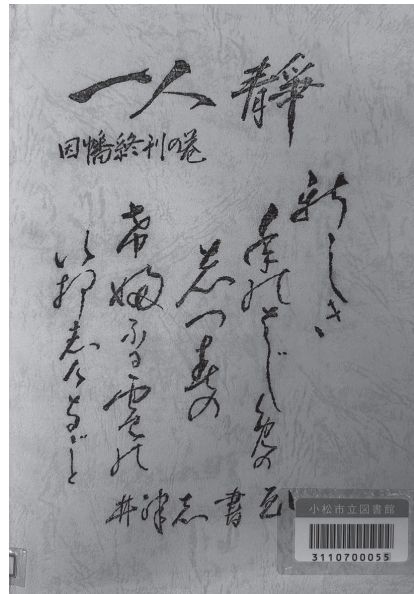 一人靜
因幡終刊の巻
新しき
年能はじ免の
はつ春の
希婦ふる雪能
い耶志け
よごと
書
小松市立図書館
3110700055